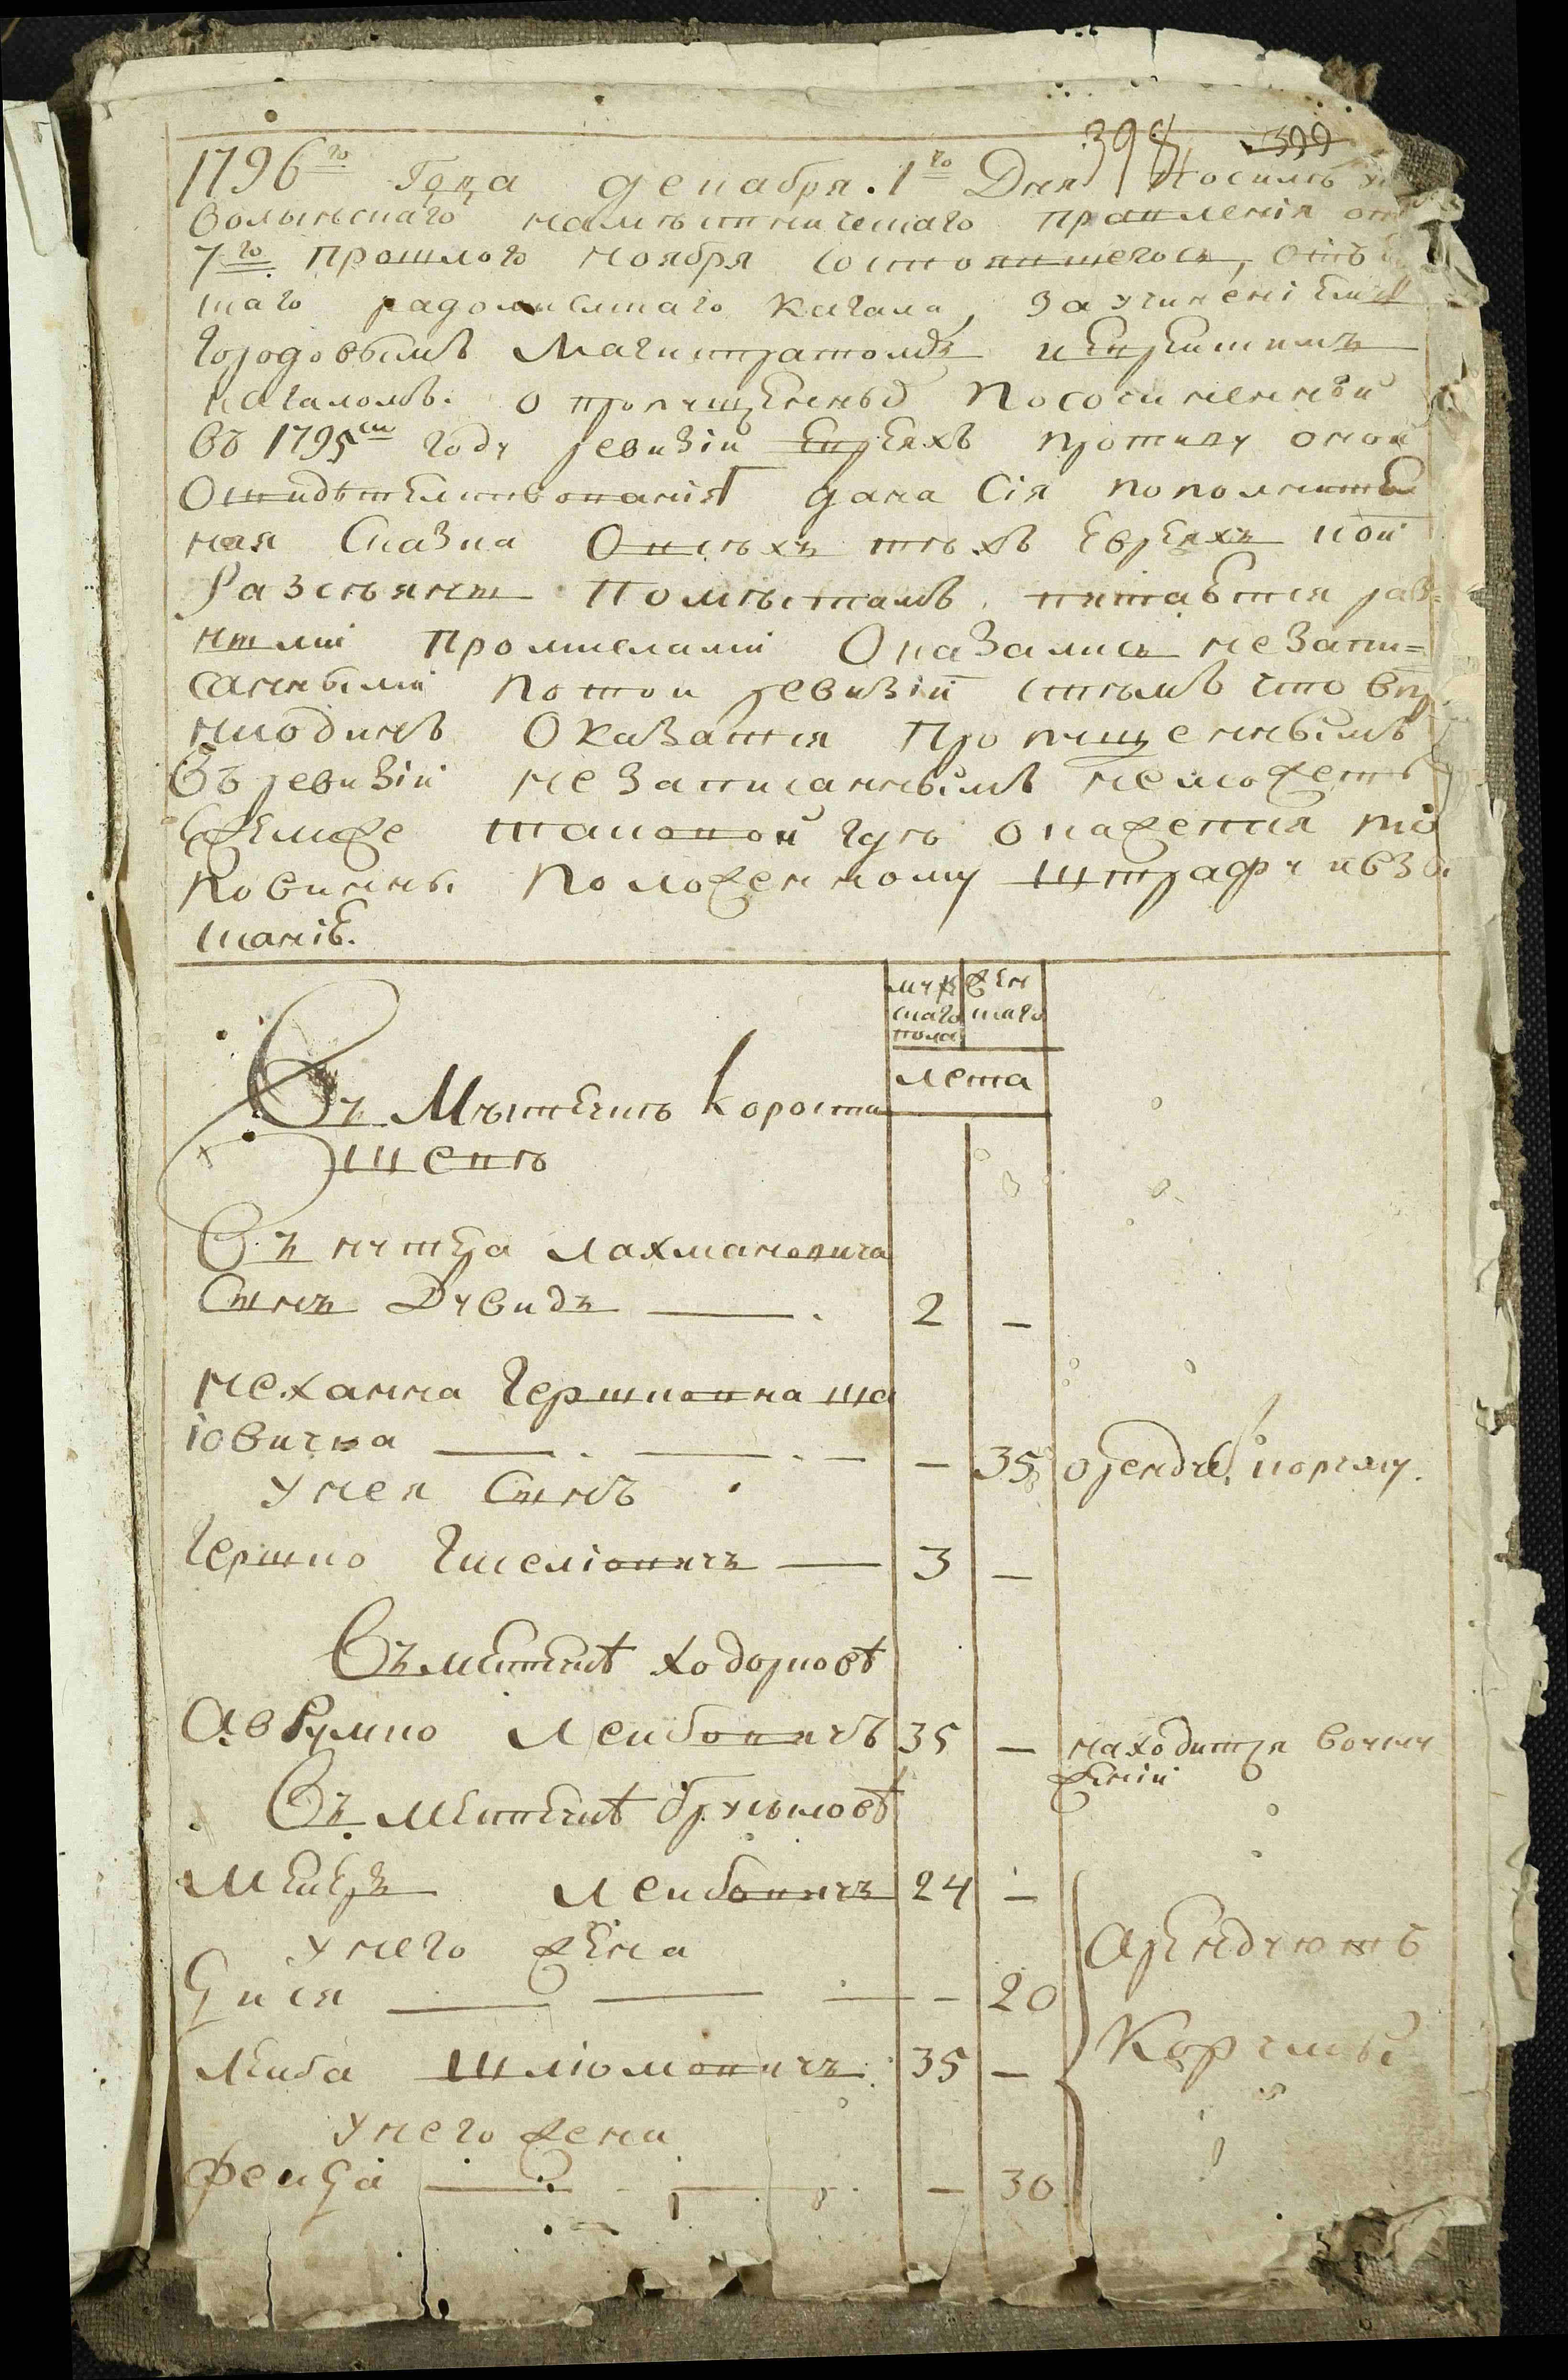 398 399
1796го Года декабря 1го Дня По силъ ук
волынскаго намѣстническаго правленія отъ
7го прошлого ноября состоявшегося, отъ
скаго радомислскаго кагала, за учиненіемъ
городовымъ магистратомъ и еврейскимъ
кагаломъ. о пропущенныхъ по сочиненной
въ 1795м году ревизіи евреяхъ противу оной
освидѣтелствованія дана сія пополните
ная сказка о всѣхъ тѣхъ евреяхъ кои
разсѣянѣ по мѣстамъ. питаются раз=
ними промислами оказались не запи=
санными по той ревизіи стѣмъ что впр
ниодинъ оказатся пропущеннымъ
въ ревизіи не записаннымъ не можетъ
ежелиже таковой гдѣ окажется то
повинны положенному штрафу и взи
сканіе.
муж скаго пола
жен скаго
лета
Въ Мѣстечкѣ корости
шевѣ
въ нутера лахмановича
сынъ Дувидъ — 2 —
неханна гершковна ша
іовичка — — — — 35 орендуе корчму.
у нея сынъ
гершко гиселіовичъ — 3 —
Въ местечкѣ ходорковѣ
Аврумко Лейбовичъ 35 — находится в служ
женіи
Въ местечкѣ брусиловѣ
Мейеръ лейбовичъ 24 —
у него жена
Цися — — — — 20
Арендуютъ
Корчмы
лейба шліомовичъ 35 —
у него жена
фейга — — — — 30